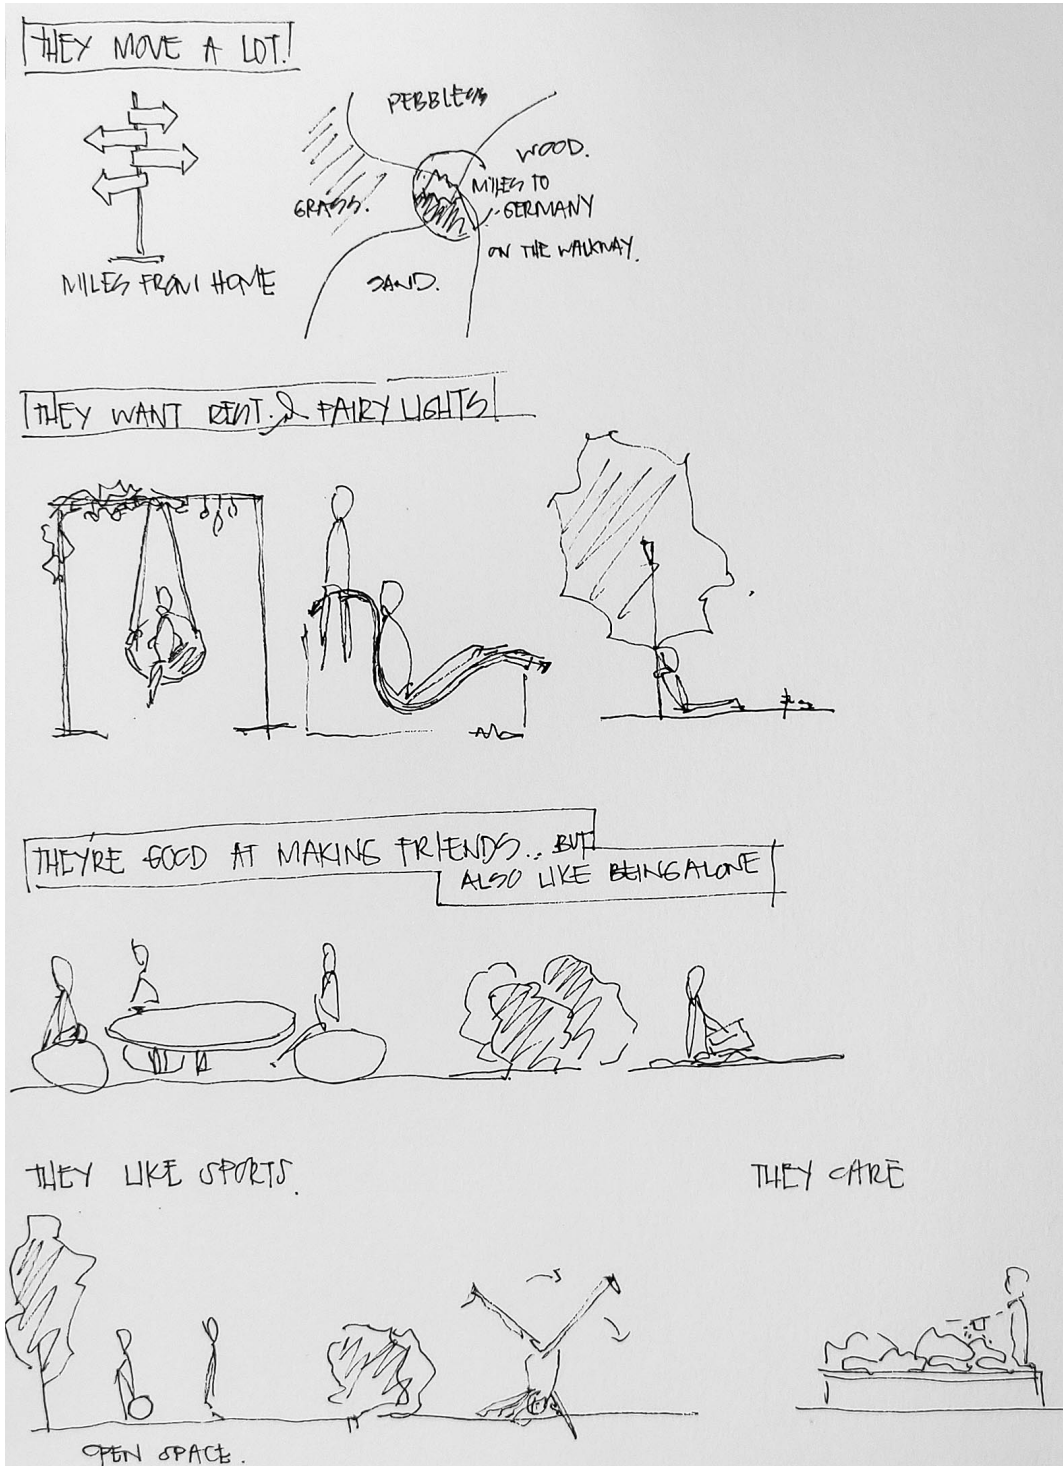 THEY MOVE A LOT!
PEBBLES
WOOD.
GRASS.
MILES TO
GERMANY
ON THE WALKWAY.
SAND.
MILES FROM HOME
THEY WANT REST. & FAIRY LIGHTS
THEY'RE GOOD AT MAKING FRIENDS.. BUT
ALSO LIKE BEING ALONE
THEY LIKE SPORTS.
THEY CARE
OPEN SPACE.